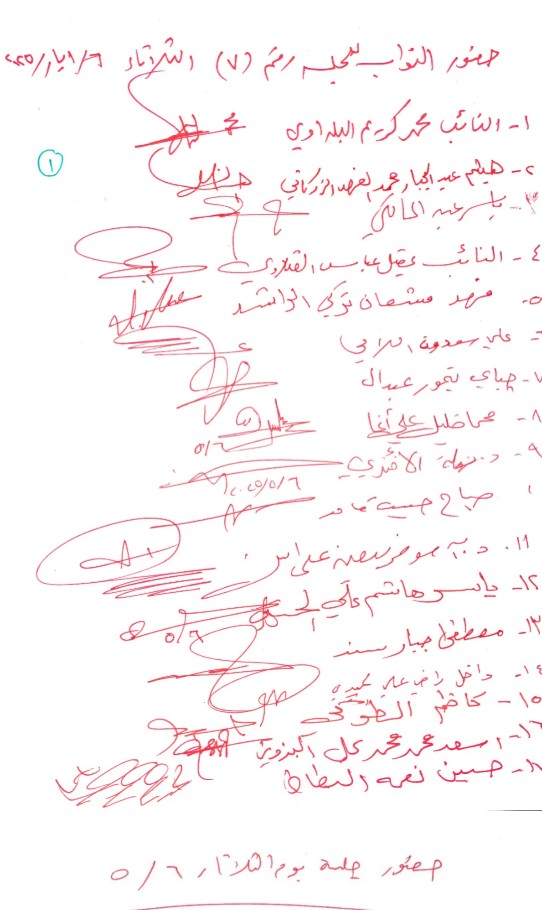 حضور النواب للجلسة رقم (٧) الثلاثاء ٦/ايار/٢٠٢٥
١- النائب محمد كريم البلداوي
١
٢- هيثم عبد الجبار محمد الفهد الزركاني
٣- ياسر عبد المالكي
٤- النائب عقيل عباس الفتلاوي
٥- فهد مشعان تركي الراشد
٦- علي سعدون اللامي
٧- جياي تيمور عبدال
٨- محما خليل علي آغا
٥/٦
٩- د. نهلة الأفندي
٢٠٢٥/٥/٦
صباح حسن
١١. د.
١٢- ياسر هاشم علي
٥/٦
١٣- مصطفى جبار سند
١٤- داخل راضي علي
١٥- كاظم الطوكي
١٦- اسعد محمد محمد علي البزوني
حسين نعمه البطاط
حضور جلسة يوم الثلاثاء ٥/٦